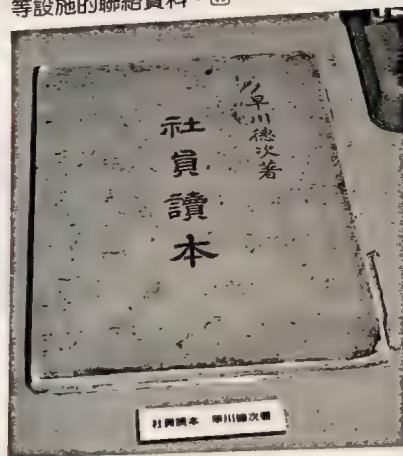 等設施的聯絡資料。
早川德次著
社員讀本
社員讀本　早川德次著